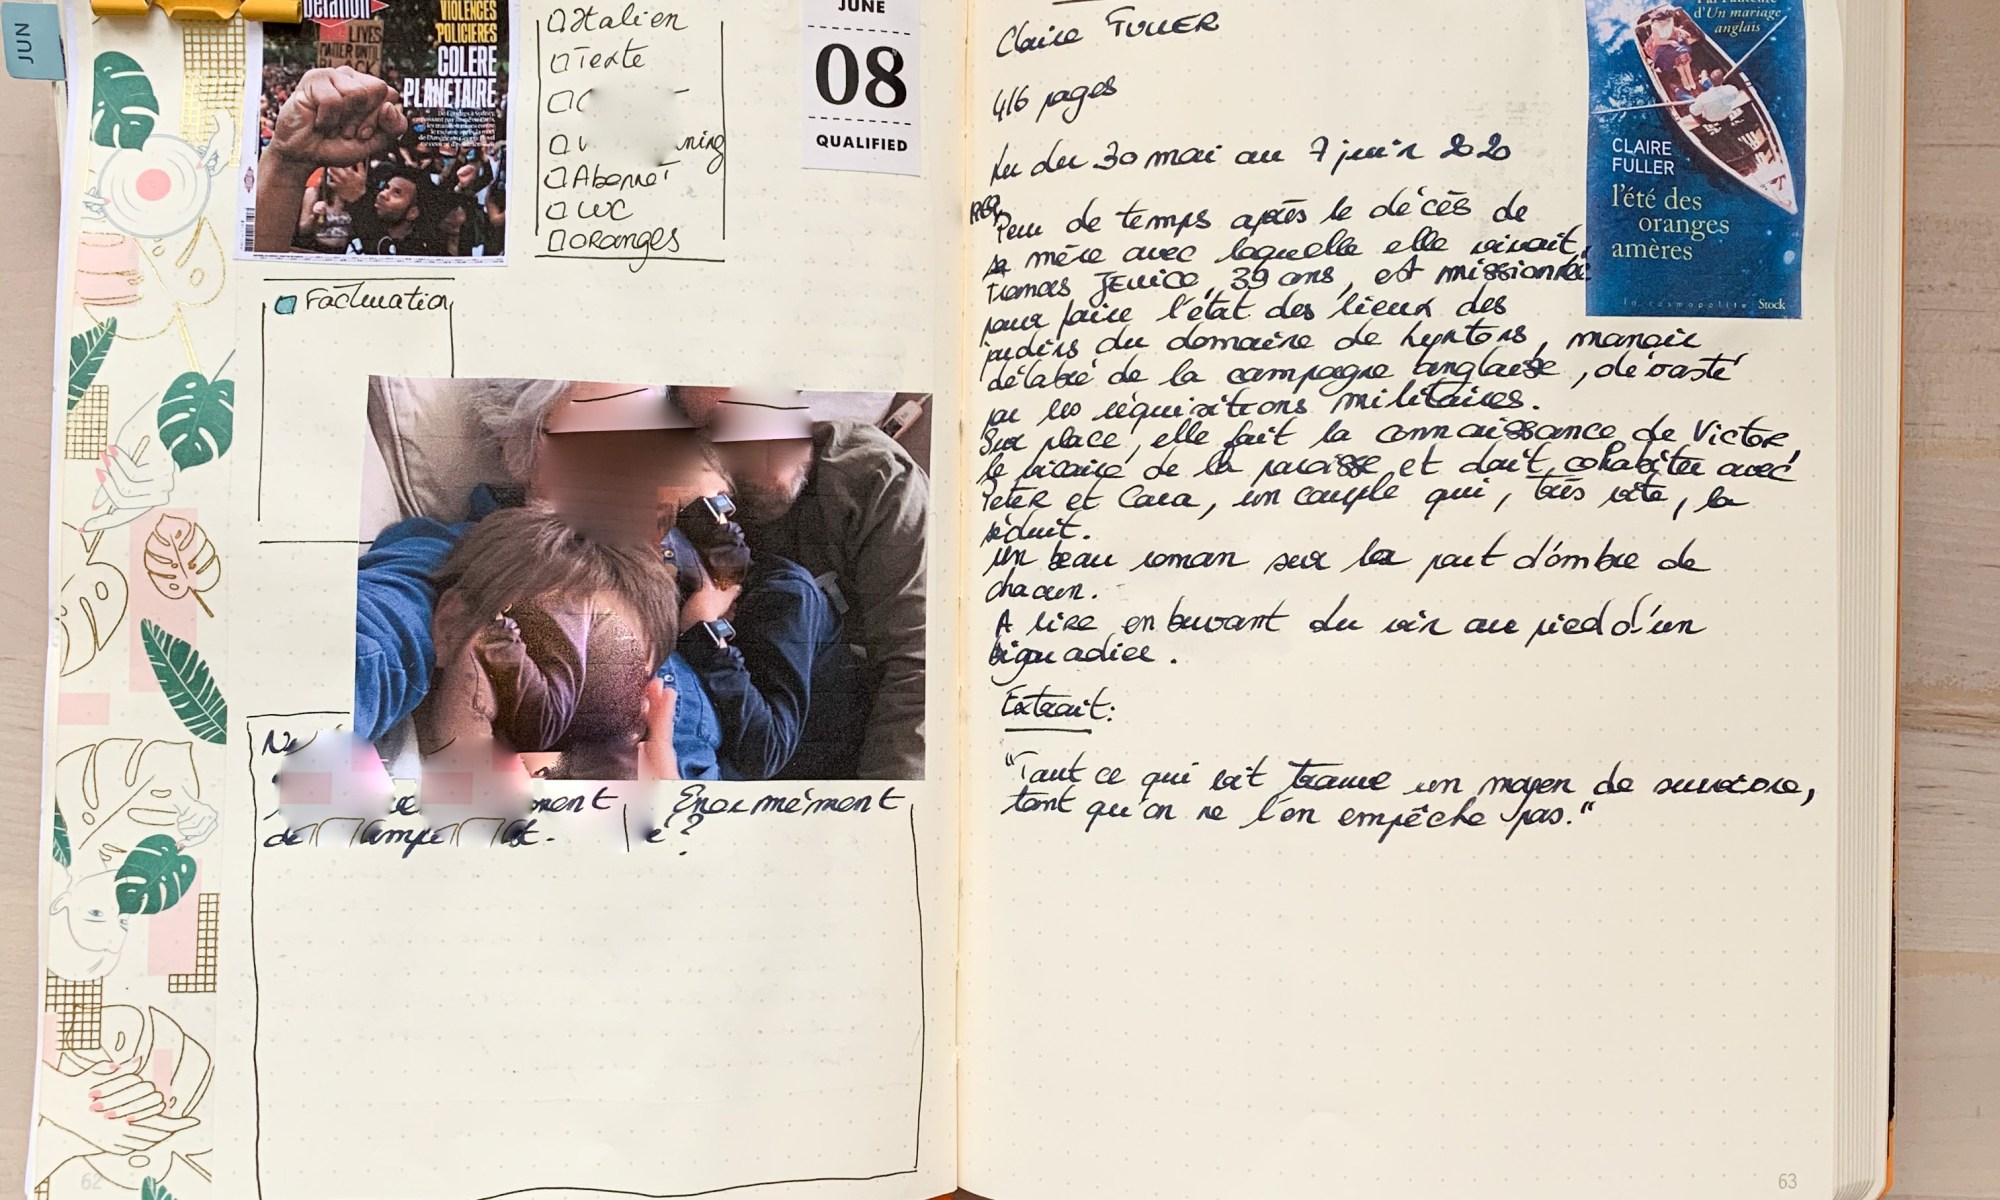 JUN
Libération
LIVES
MATTER UNTIL
BLACK
VIOLENCES
POLICIÈRES
COLÈRE
PLANÉTAIRE
Italien
Texte
ning
Abonnet
WC
oranges
JUNE
08
QUALIFIED
Facturation
Énormément
é?
62
Claire FULLER
416 pages
Lu du 30 mai au 7 juin 2020
Peu de temps après le décès de
sa mère avec laquelle elle vivait,
Frances JELLICO, 39 ans, est missionnée
pour faire l'état des lieux des
jardins du domaine de Lyntons, manoir
délabré de la campagne anglaise, dévasté
par les réquisitions militaires.
Sur place, elle fait la connaissance de Victor,
le vicaire de la paroisse et doit cohabiter avec
Peter et Cara, un couple qui, très vite, la
séduit.
Un beau roman sur la part d'ombre de
chacun.
A lire en buvant du vin au pied d'un
bigaradier.
Extrait:
"Tout ce qui vit trouve un moyen de survivre,
tant qu'on ne l'en empêche pas."
d'Un mariage
anglais
CLAIRE
FULLER
l'été des
oranges
amères
la cosmopolite Stock
63